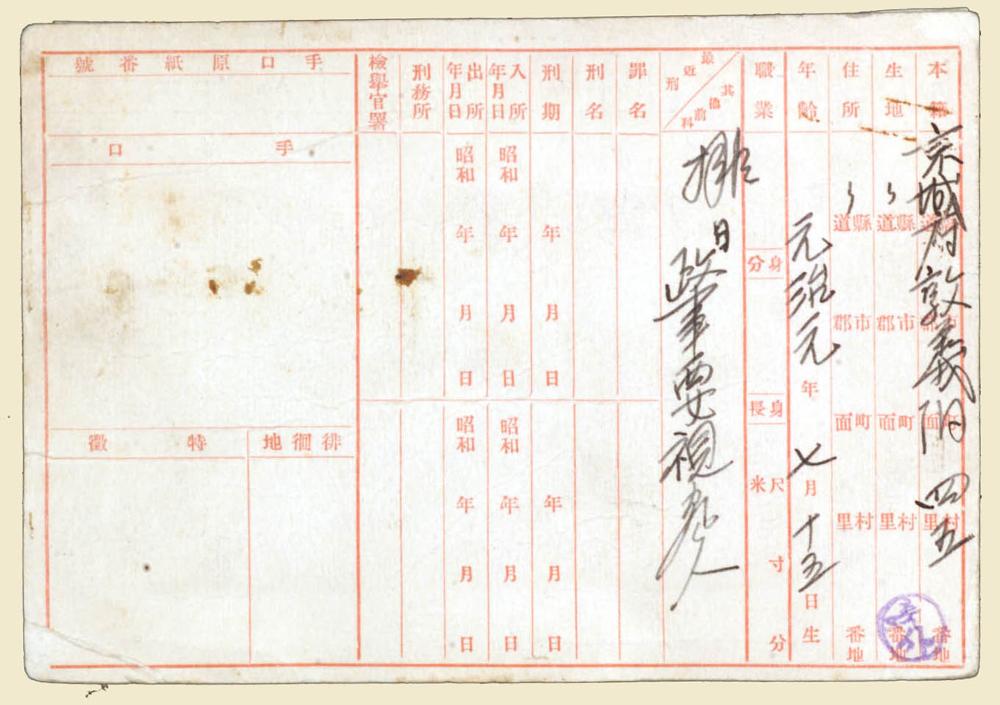 本籍 京城府敦義洞 四五 道縣 郡市 面町 里村 番地
生地 〃 道縣 郡市 面町 里村 番地
住所 〃 道縣 郡市 面町 里村 番地
年齡 元治元年 七月 十五日生
職業 身分 身長 尺米 寸 分
最近刑 其他前科
排日 政事要視察人
罪名
刑名
刑期 年 月 日 年 月 日
入所年月日 昭和 年 月 日 昭和 年 月 日
出所年月日 昭和 年 月 日 昭和 年 月 日
刑務所
檢擧官署
手口原紙番號
手口
徘徊地
特徵